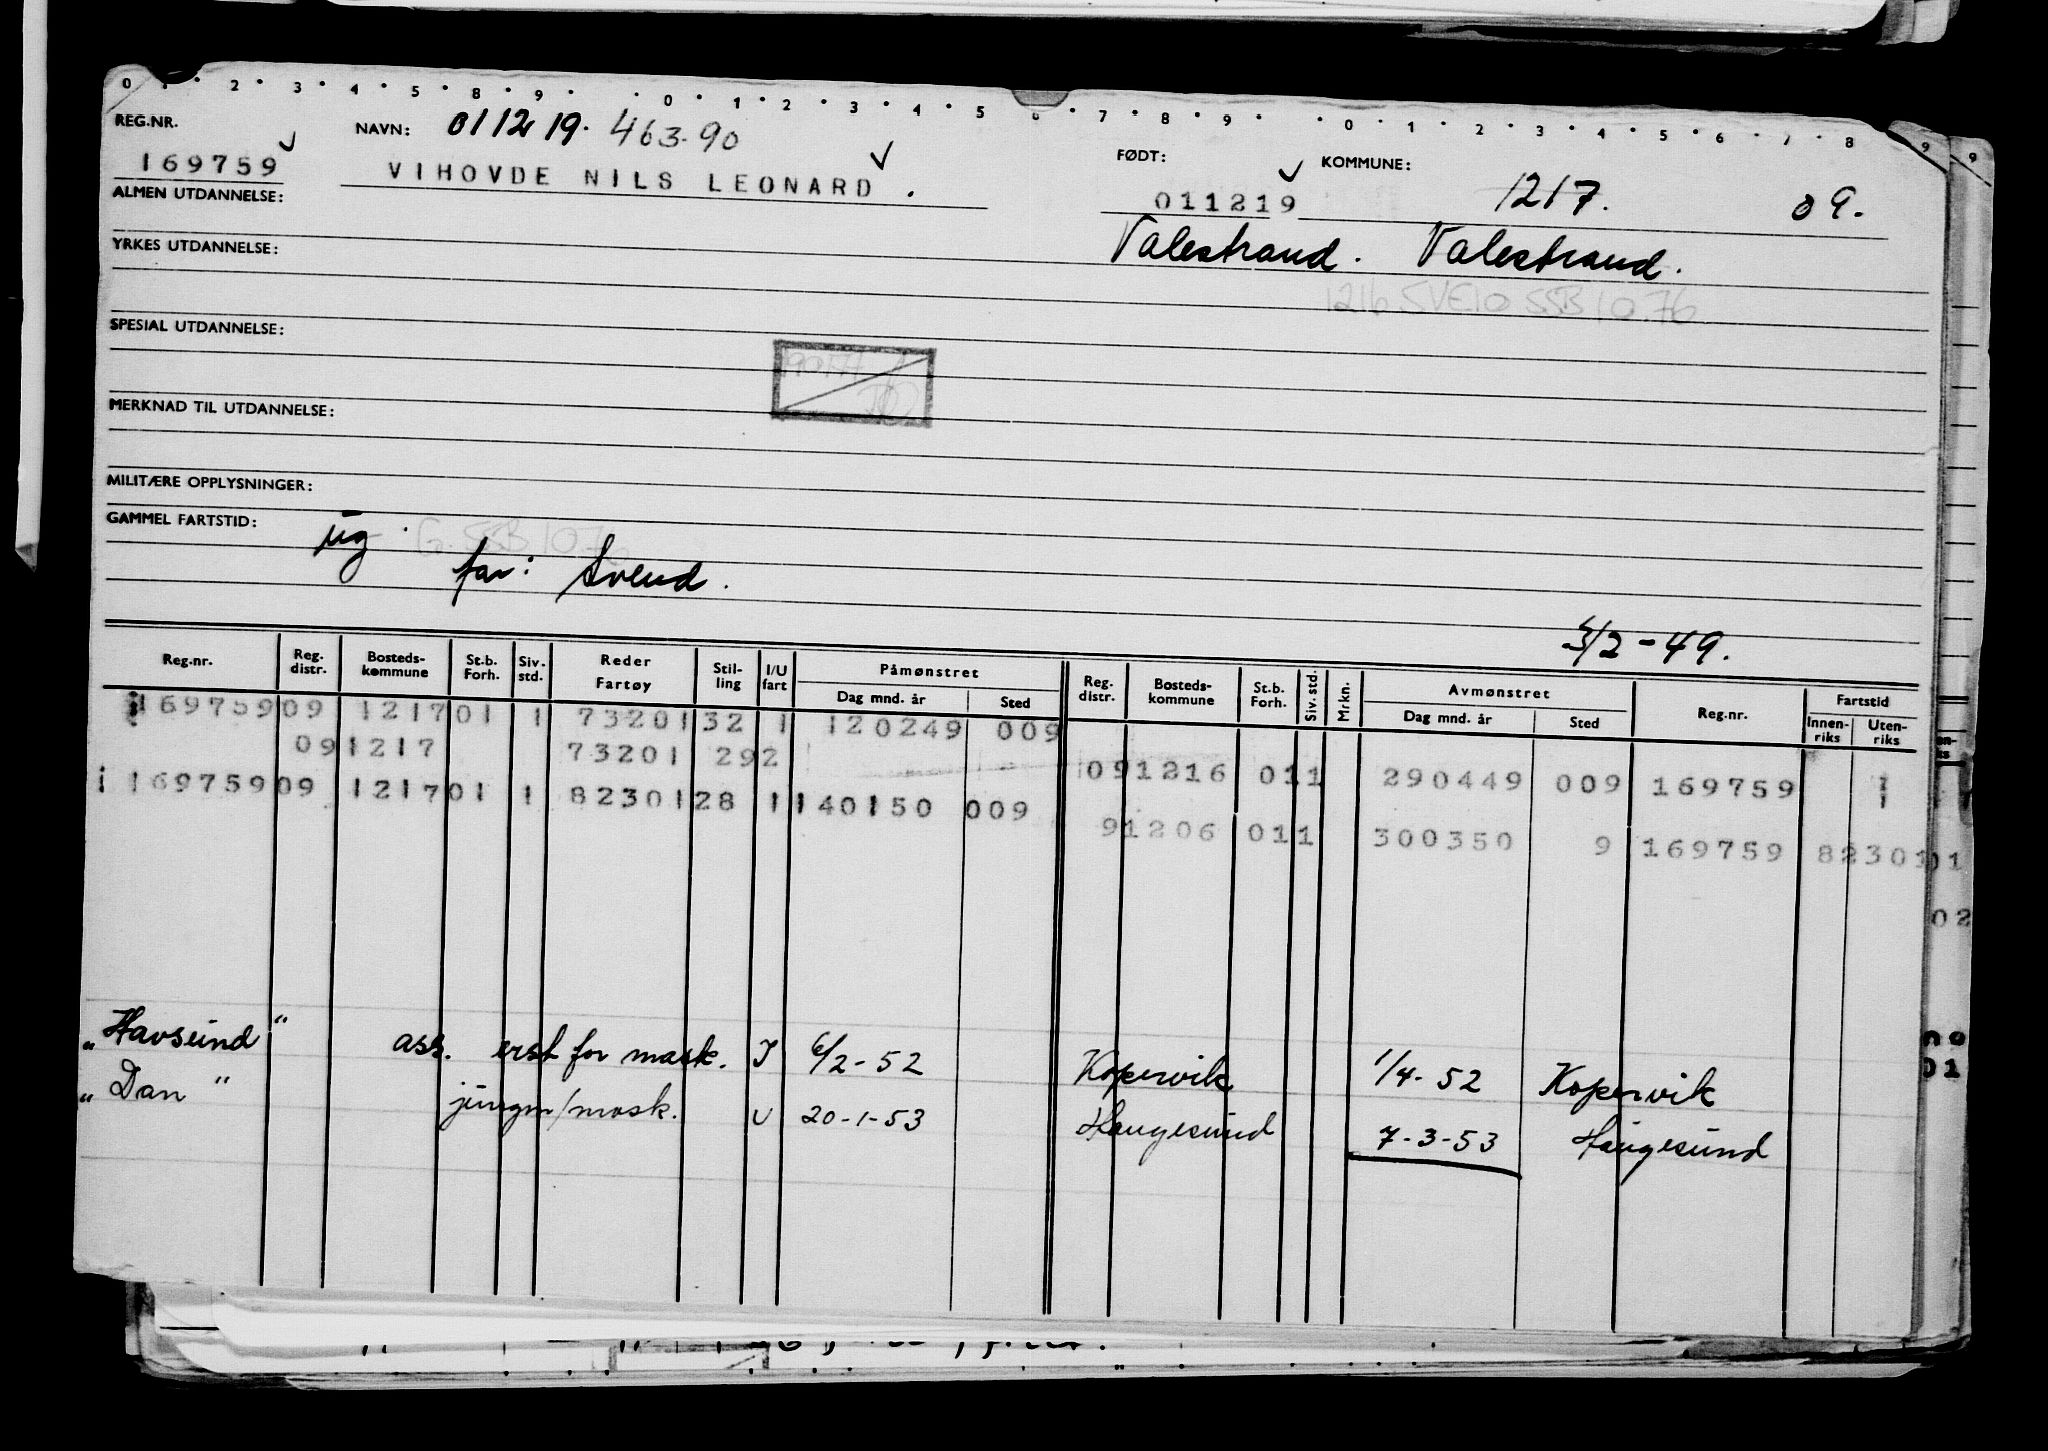 0 2 3 4 5 8 9 0 1 2 3 4 5 6 7 8 9 0 1 2 3 4 5 6 7 8 9
REG.NR. NAVN: 011219. 463.90 FØDT: KOMMUNE:
169759 VIHOVDE NILS LEONARD . 011219 1217. 09.
ALMEN UTDANNELSE: Valestrand. Valestrand.
YRKES UTDANNELSE: 1216 SVEIO SSB 10.76
SPESIAL UTDANNELSE:
MERKNAD TIL UTDANNELSE:
MILITÆRE OPPLYSNINGER:
GAMMEL FARTSTID: jug. G. SSB 10.76
far: Svend.
5/2-49.
Reg.nr. Reg. distr. Bosteds- kommune St.b. Forh. Siv. std. Reder Fartøy Stil- ling I/U fart Påmønstret Dag mnd. år Sted Reg. distr. Bosteds- kommune St.b. Forh. Siv. std. Mrkn. Avmønstret Dag mnd. år Sted Reg.nr. Fartstid Innen- riks Uten- riks
169759 09 1217 01 1 73201 32 1 120249 009
09 1217 73201 292 09 1216 01 1 290449 009 169759
169759 09 1217 01 1 82301 28 1 140150 009
9 1206 01 1 300350 9 169759 82301 01
02
„Havsund" ass. erst for mask. I 6/2-52 Kopervik 1/4-52 Kopervik
„Dan" jungm/mask. U 20-1-53 Haugesund 7-3-53 Haugesund
01